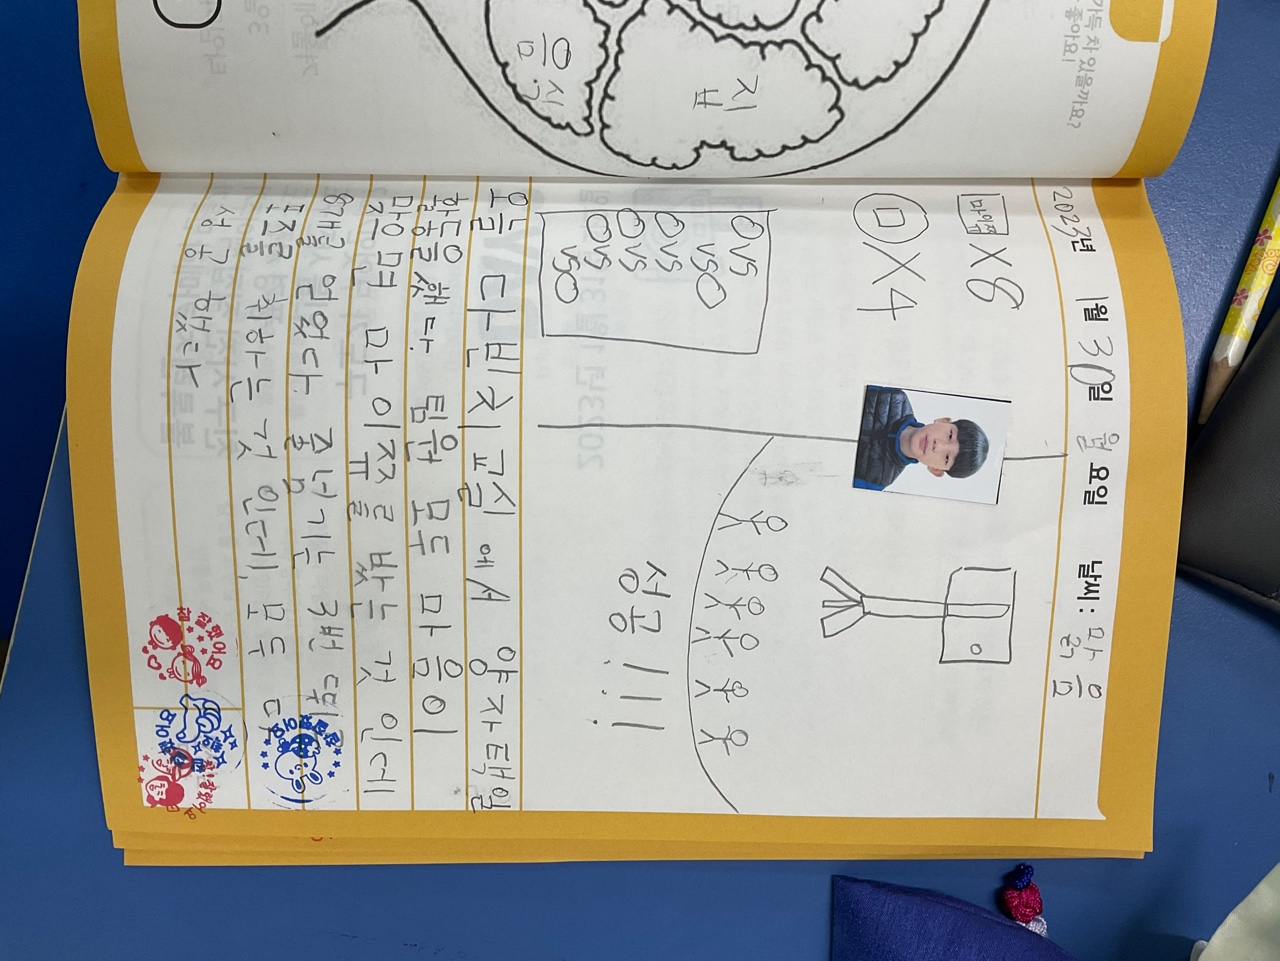 가득 차 있을까요?
좋아요!
집
음식
2023년 1월 30일 월요일 날씨: 맑음
마이쮸 X8
ㅁ X4
O VS
VS O
O VS
O VS
O VS
VS O
성공!!!
오늘 다빈치교실에서 양자택일
활동을 했다. 팀원 모두 마음이
맞으면 마이쮸를 받는 것 인데
8개를 얻었다. 줄넘기는 3번 뛰고
포즈를 취하는 것 인데, 모두 다
성공했다
참 잘했어요